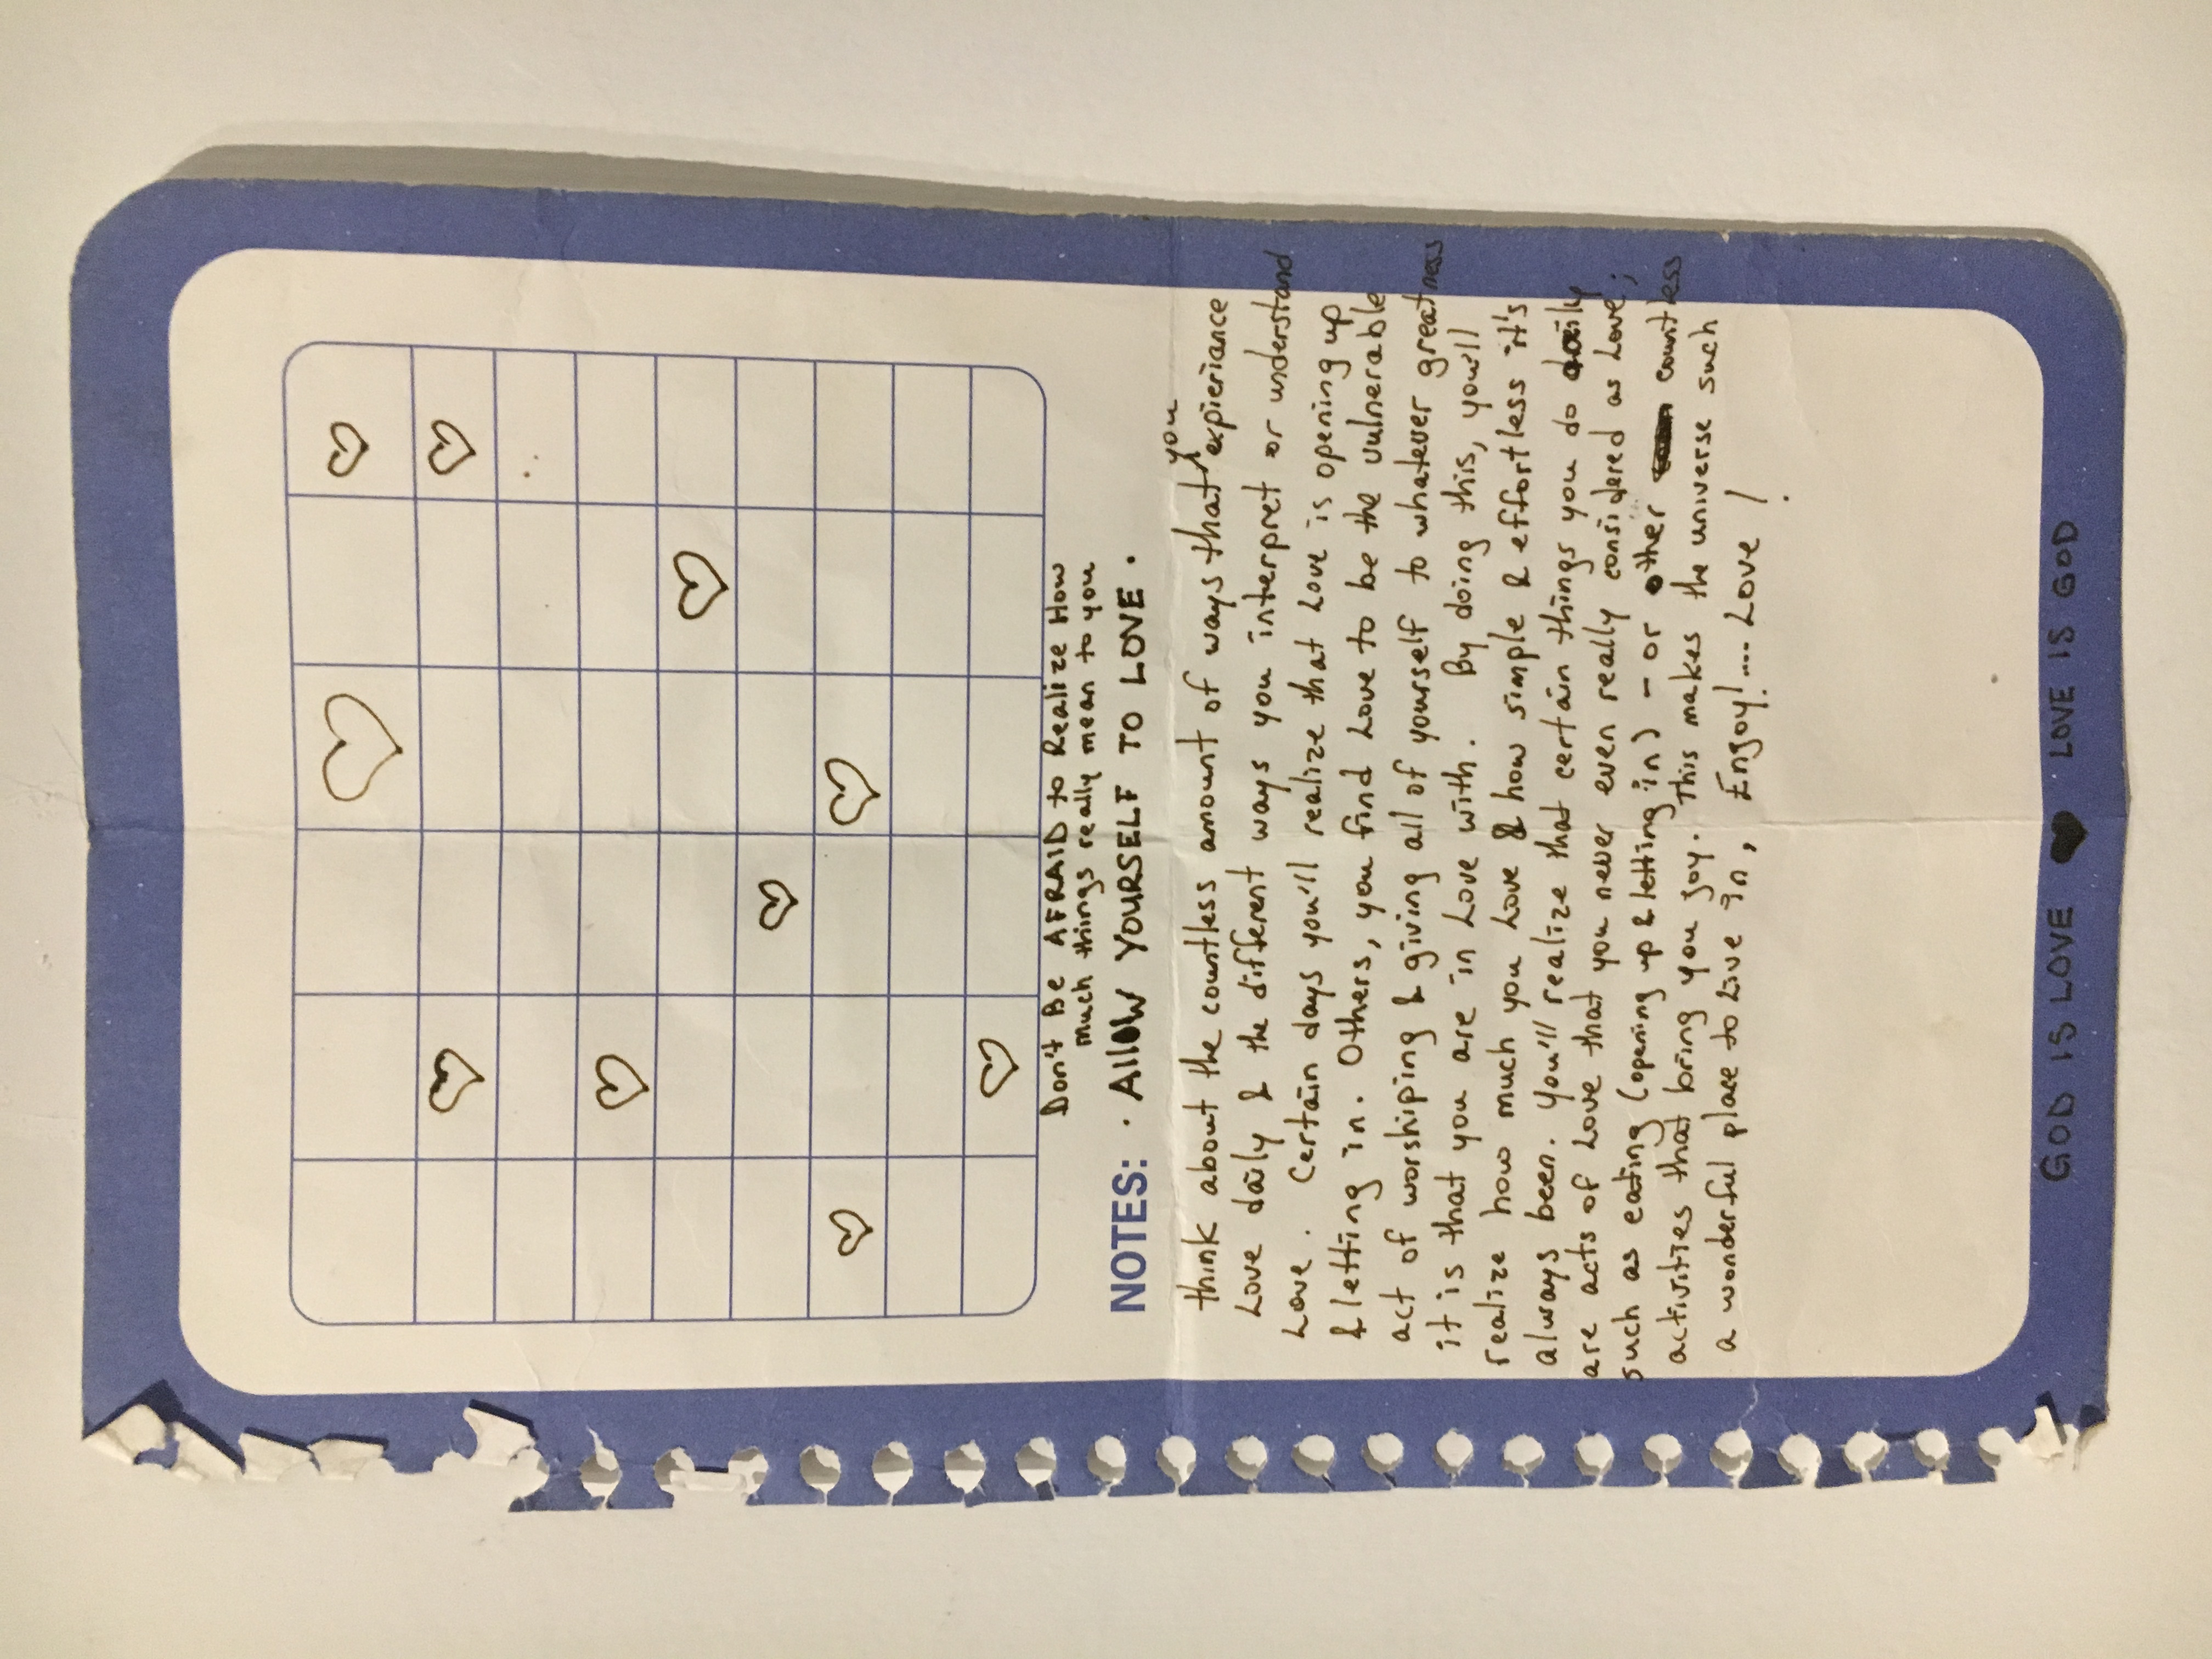 Don't Be AFRAID to Realize How
much things really mean to you
NOTES: · AllOW YOURSELF TO LOVE ·
you
think about the countless amount of ways that ^ expieriance
Love daily & the different ways you interpret or understand
Love. Certain days you'll realize that Love is opening up
& letting in. Others, you find Love to be the vulnerable
act of worshiping & giving all of yourself to whatever greatness
it is that you are in Love with. By doing this, you'll
realize how much you Love & how simple & effortless it's
always been. You'll realize that certain things you do daily
are acts of Love that you never even really considered as Love;
such as eating (opening up & letting in) - or other countless
activities that bring you joy. This makes the universe such
a wonderful place to Live in, Enjoy!.... Love !
GOD IS LOVE ♥ LOVE IS GOD